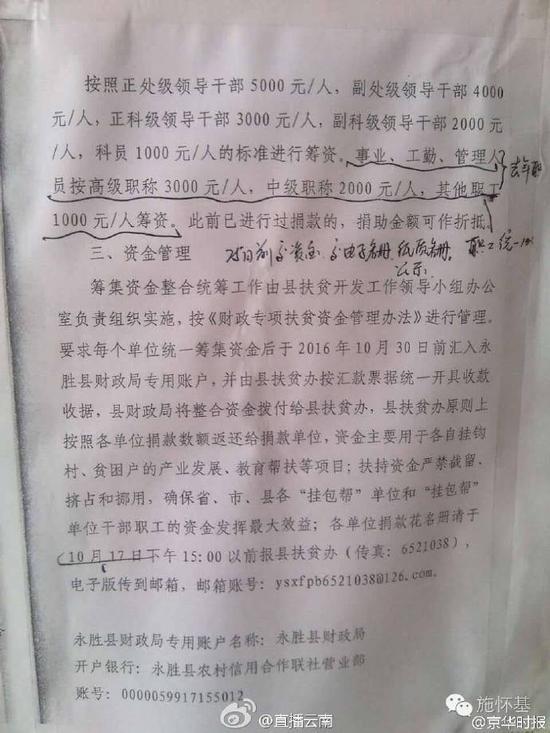 按照正处级领导干部 5000 元/人，副处级领导干部 4000
元/人，正科级领导干部 3000 元/人，副科级领导干部 2000
元/人，科员 1000 元/人的标准进行筹资。事业、工勤、管理人
员按高级职称 3000 元/人，中级职称 2000 元/人，其他职工
1000 元/人筹资。此前已进行过捐款的，捐助金额可作折抵。
三、资金管理
25日前交资金 交电子名册、纸质名册
公示
职工统一
筹集资金整合统筹工作由县扶贫开发工作领导小组办公
室负责组织实施，按《财政专项扶贫资金管理办法》进行管理。
要求每个单位统一筹集资金后于 2016 年 10 月 30 日前汇入永
胜县财政局专用账户，并由县扶贫办按汇款票据统一开具收款
收据，县财政局将整合资金拨付给县扶贫办，县扶贫办原则上
按照各单位捐款数额返还给捐款单位，资金主要用于各自挂钩
村、贫困户的产业发展、教育帮扶等项目；扶持资金严禁截留、
挤占和挪用，确保省、市、县各“挂包帮”单位和“挂包帮”
单位干部职工的资金发挥最大效益；各单位捐款花名册请于
10 月 17 日下午 15:00 以前报县扶贫办（传真：6521038），
电子版传到邮箱，邮箱账号：ysxfpb6521038@126.com。
永胜县财政局专用账户名称：永胜县财政局
开户银行：永胜县农村信用合作联社营业部
账号：0000059917155012
@直播云南
施怀基
@京华时报